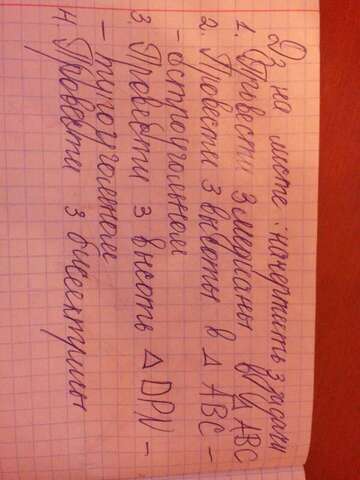 Дз на листе: начертить 3 задачи
1. Провести 3 медианы в Δ ABC
2. Провести 3 высоты в Δ ABC –
- остроугольном
3. Провести 3 высоть Δ DPN –
- тупоугольном
4. Провести 3 биссектрисы